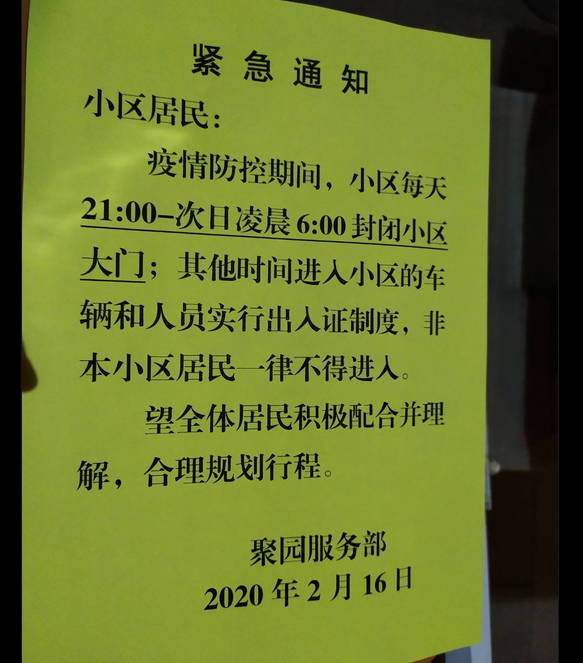 紧急通知
小区居民：
疫情防控期间，小区每天
21:00–次日凌晨 6:00 封闭小区
大门；其他时间进入小区的车
辆和人员实行出入证制度，非
本小区居民一律不得进入。
望全体居民积极配合并理
解，合理规划行程。
聚园服务部
2020 年 2 月 16 日